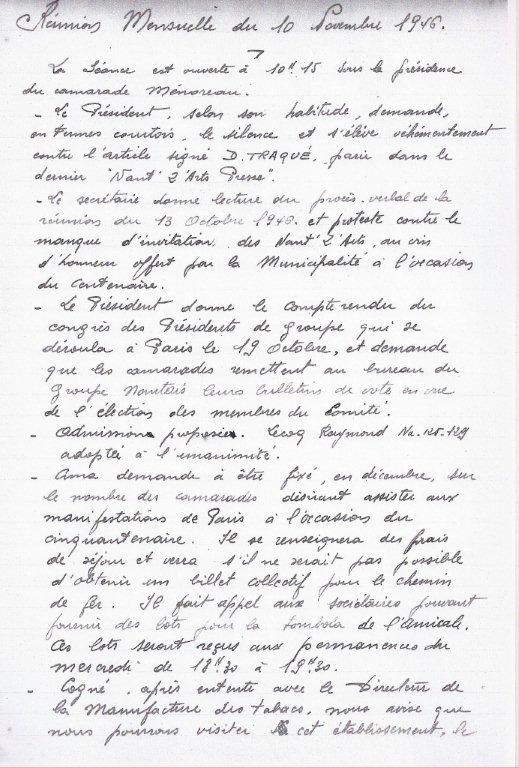 Réunion Mensuelle du 10 Novembre 1946.
La Séance est ouverte à 10H15 sous la présidence
du camarade Ménoreau.
- Le Président, selon son habitude, demande,
en termes courtois, le silence et s'élève véhémentement
contre l'article signé D. TRAQUÉ, paru dans le
dernier "Nant' Z'Arts Presse".
- Le secrétaire donne lecture du procès-verbal de la
réunion du 13 Octobre 1946. et proteste contre le
manque d'invitation des Nant' Z'Arts, au vin
d'honneur offert par la Municipalité à l'occasion
du Centenaire.
- Le Président donne le compte rendu du
congrès des Présidents de Groupe qui se
déroula à Paris le 19 Octobre, et demande
que les camarades remettent au bureau du
Groupe Nantais leurs bulletins de vote en vue
de l'élection des membres du Comité.
- Admission proposée. Lecoq Raymond Na. 125-129
adoptée à l'unanimité.
- Ama demande à être fixé, en décembre, sur
le nombre des camarades désirant assister aux
manifestations de Paris à l'occasion du
cinquantenaire. Il se renseignera des frais
de séjour et verra s'il ne serait pas possible
d'obtenir un billet collectif pour le chemin
de fer. Il fait appel aux sociétaires pouvant
fournir des lots pour la tombola de l'Amicale.
Ces lots seront reçus aux permanences du
mercredi de 18H30 à 19H30.
- Cogné, après entente avec le Directeur de
la Manufacture des tabacs, nous avise que
nous pourrons visiter cet établissement, le